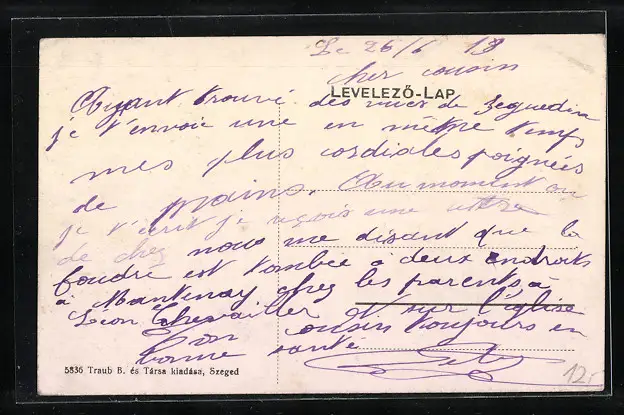 Le 26/6 19
cher cousin
LEVELEZŐ-LAP
Ayant trouvé des vues de Szeguedin
je t'envoie une en même temps
mes plus cordiales poignées
de mains. Au moment ou
je t'écrit je reçois une lettre
de chez nous me disant que la
foudre est tombée à deux endroits
à Mantenay chez les parents, à
Léon Chevallier et sur l'église
Ton cousin toujours en
bonne santé
5836 Traub B. és Társa kiadása, Szeged
12,-